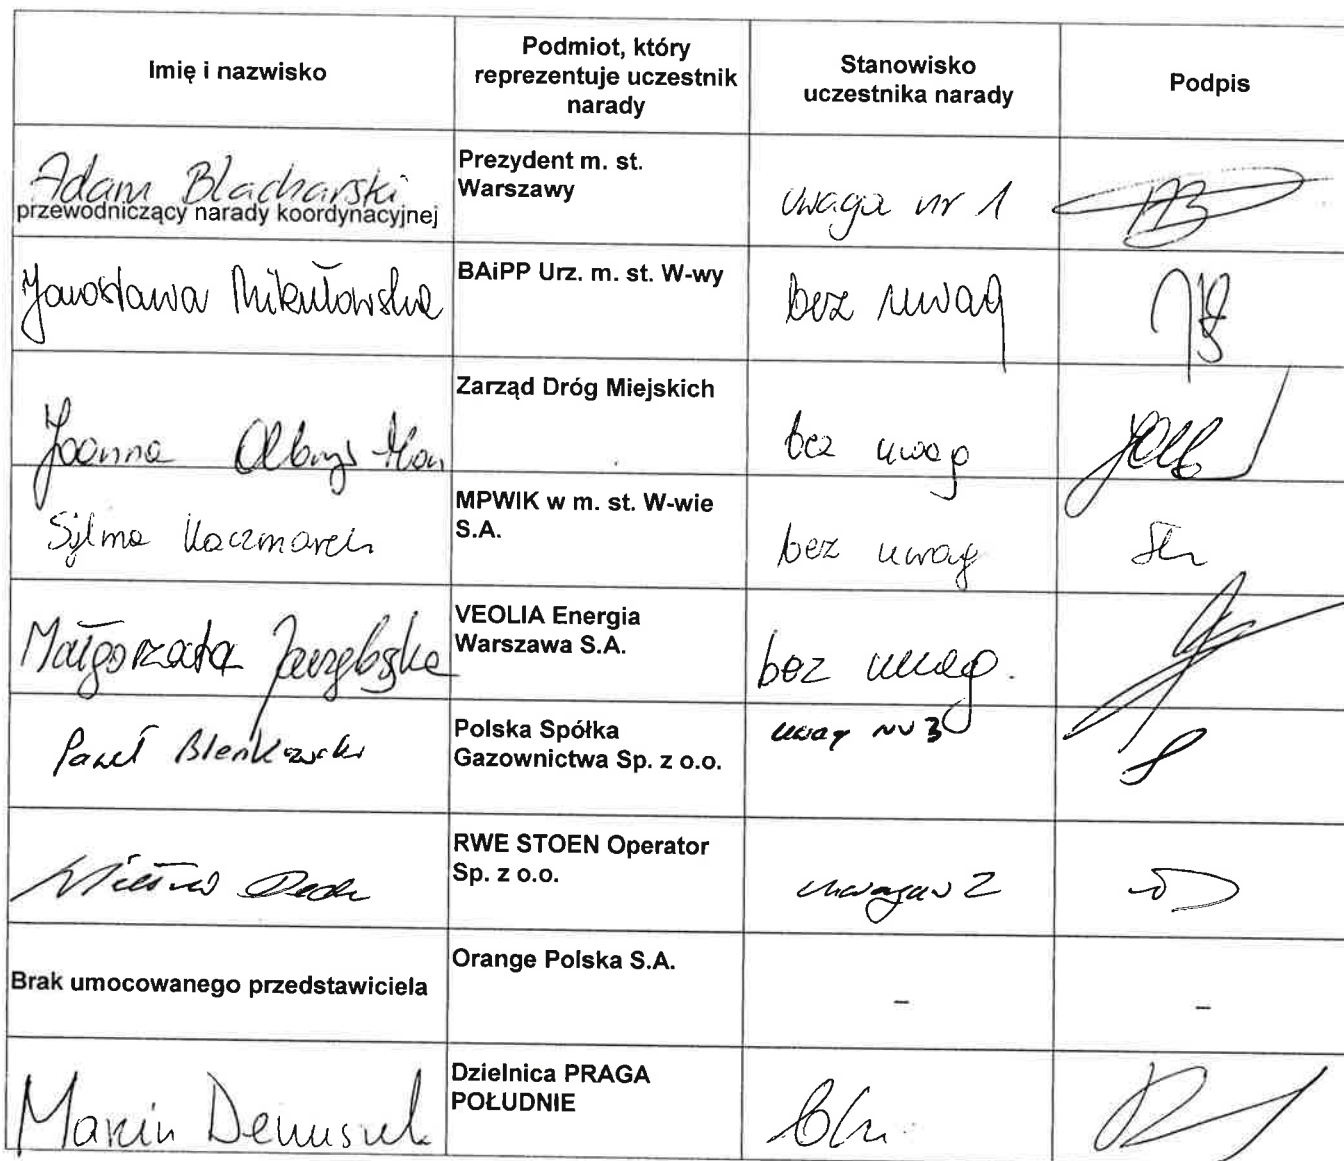 Imię i nazwisko
Podmiot, który
reprezentuje uczestnik
narady
Stanowisko
uczestnika narady
Podpis
Adam Blacharski
przewodniczący narady koordynacyjnej
Prezydent m. st.
Warszawy
uwaga nr 1
Jarosława Mikułowska
BAiPP Urz. m. st. W-wy
bez uwag
Joanna
Zarząd Dróg Miejskich
bez uwag
Sylwia Kaczmarek
MPWIK w m. st. W-wie
S.A.
bez uwag
Małgorzata
VEOLIA Energia
Warszawa S.A.
bez uwag.
Paweł Bieńkowski
Polska Spółka
Gazownictwa Sp. z o.o.
uwaga nr 3
RWE STOEN Operator
Sp. z o.o.
uwaga nr 2
Brak umocowanego przedstawiciela
Orange Polska S.A.
–
–
Marcin
Dzielnica PRAGA
POŁUDNIE